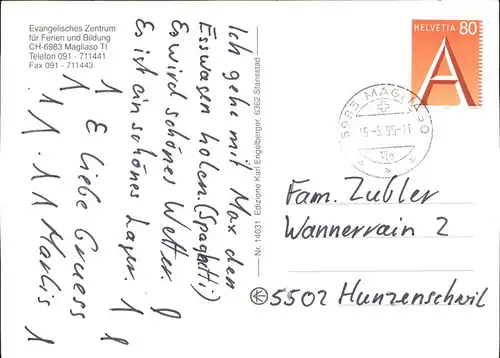 Evangelisches Zentrum
für Ferien und Bildung
CH-6983 Magliaso TI
Telefon 091 - 711441
Fax 091 - 711443
Ich gehe mit Max den
Esswagen holen. (Spaghetti)
Es wird schönes Wetter. !
Es ist ein schönes Lager. !
! E liebe Gruess
! ! Marlis !
Nr. 14031 Edizione Karl Engelberger, 6362 Stansstad
HELVETIA 80
A
6983 MAGLIASO
Fam. Zubler
Wannerrain 2
5502 Hunzenschwil